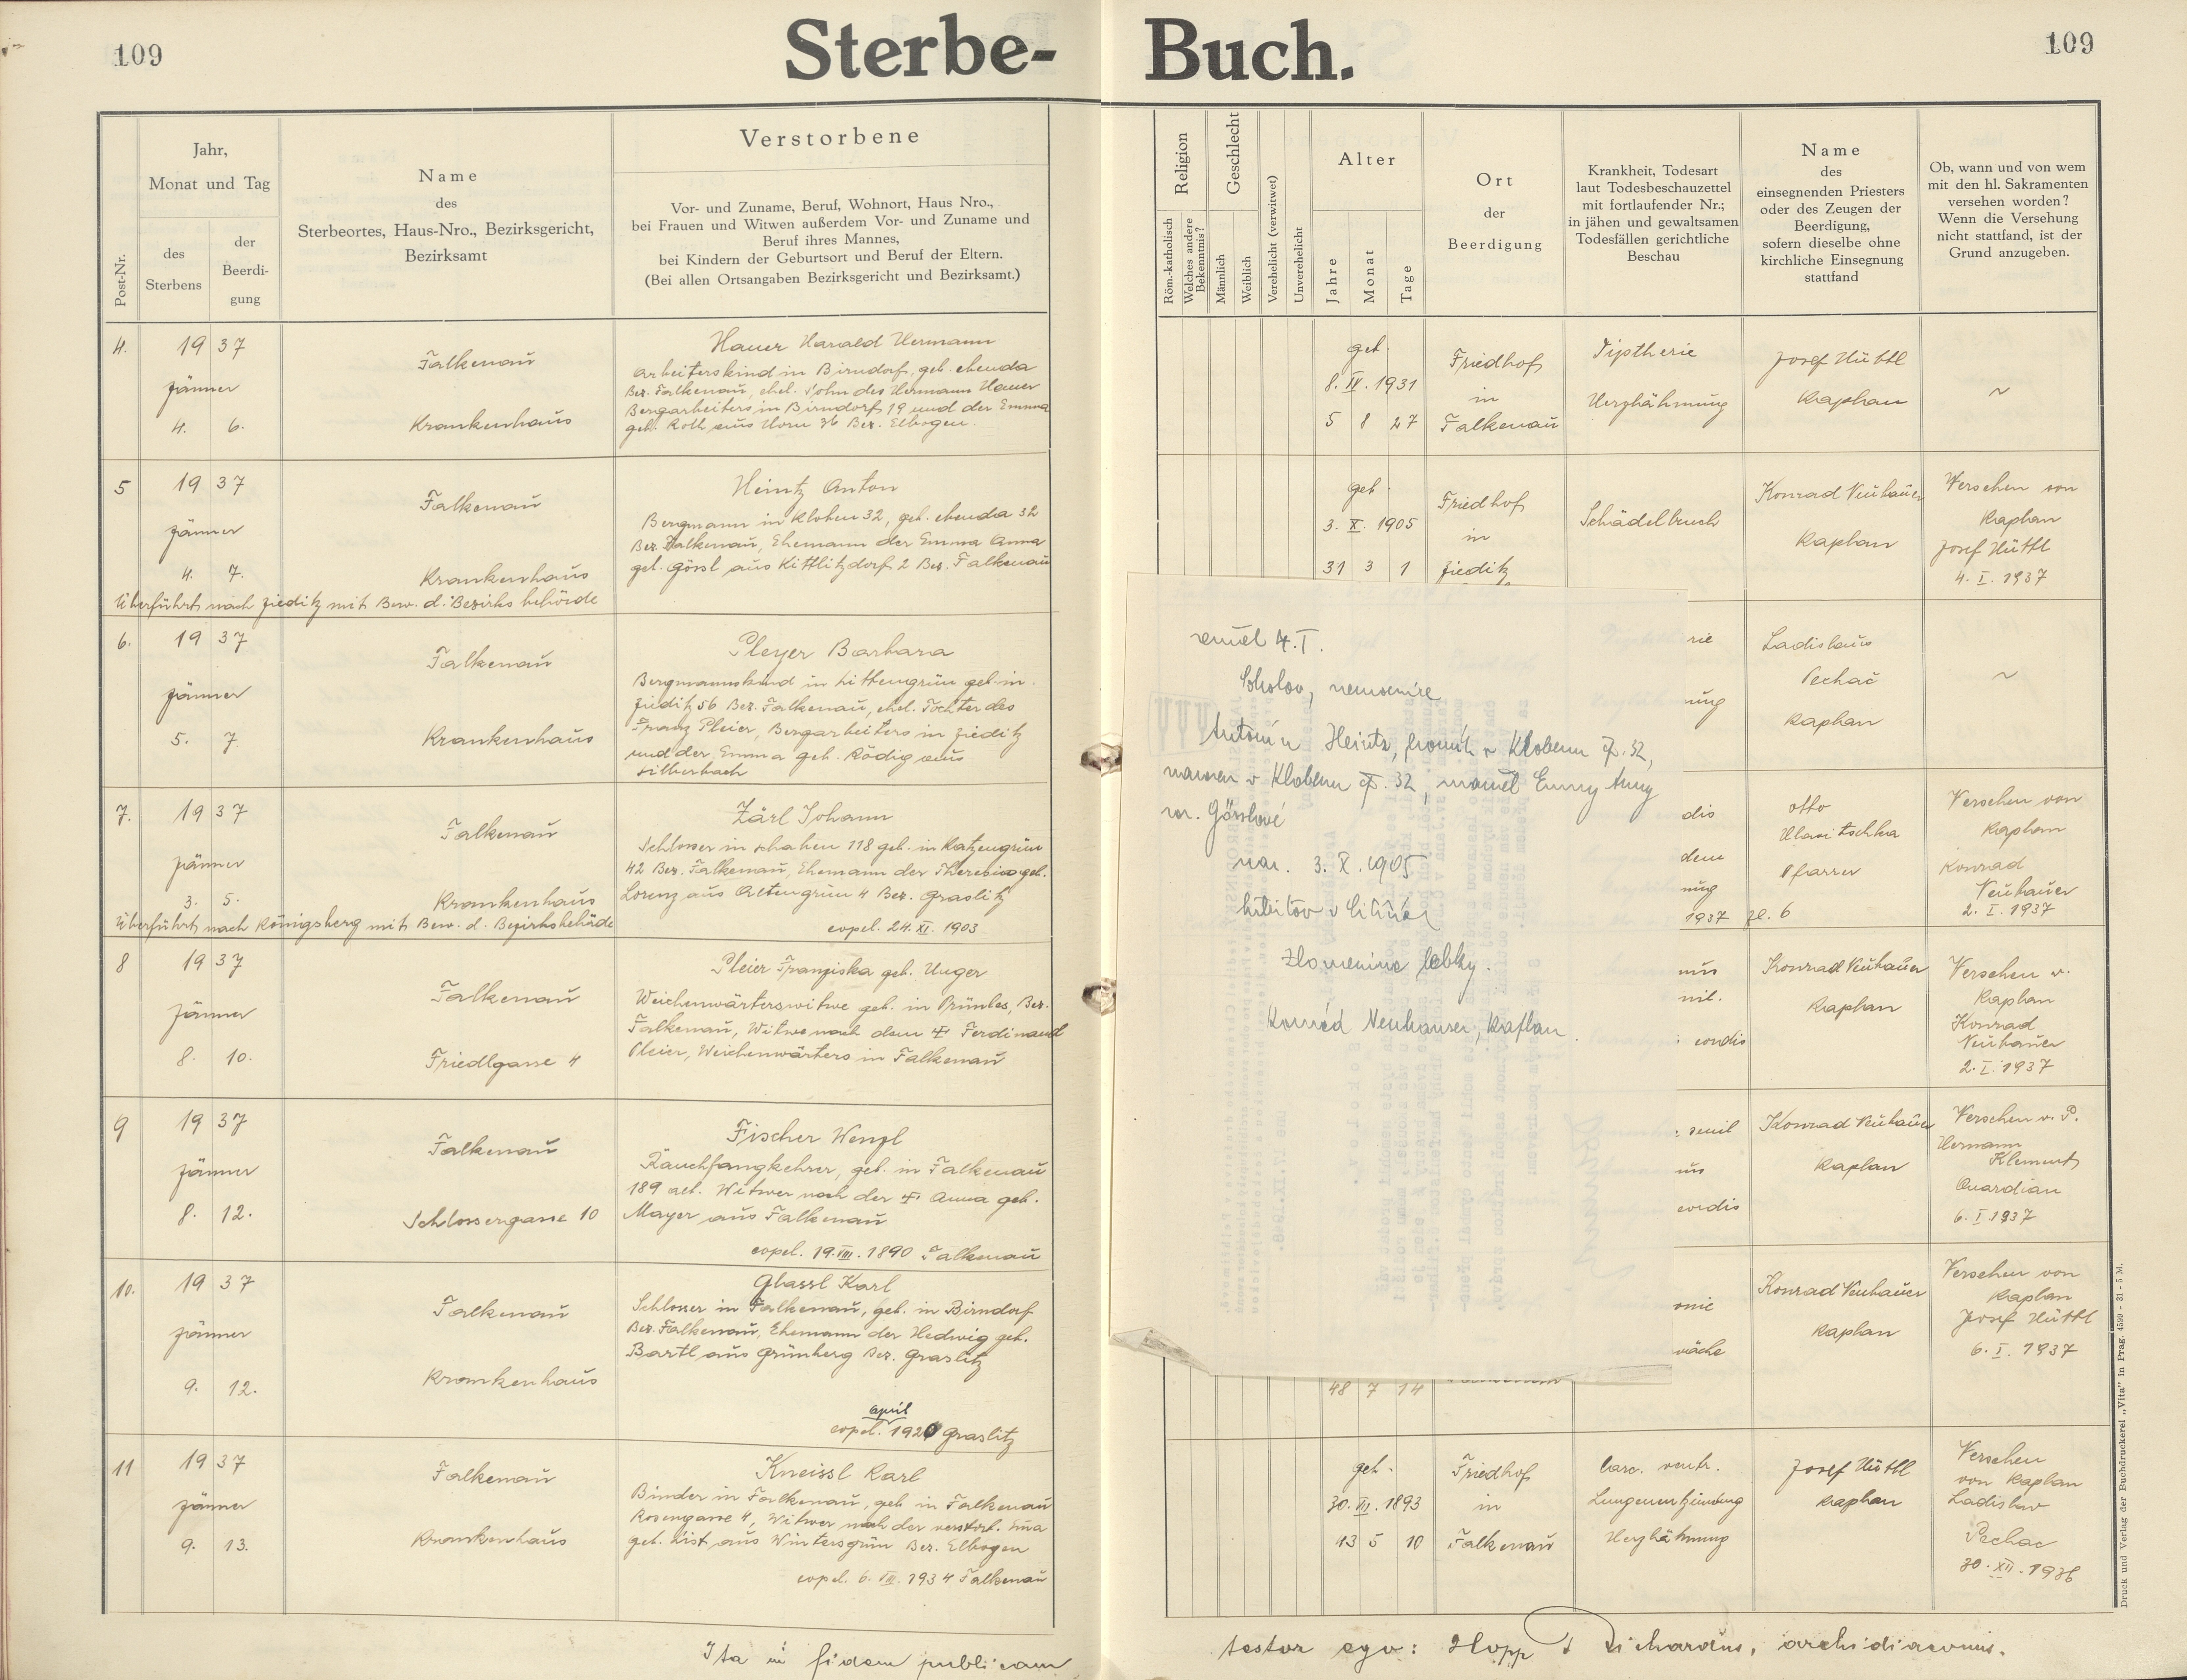 109
Sterbe-
Buch.
109
Post-Nr.
Jahr,
Monat und Tag
des
Sterbens
der
Beerdi-
gung
Name
des
Sterbeortes, Haus-Nro., Bezirksgericht,
Bezirksamt
Verstorbene
Vor- und Zuname, Beruf, Wohnort, Haus Nro.,
bei Frauen und Witwen außerdem Vor- und Zuname und
Beruf ihres Mannes,
bei Kindern der Geburtsort und Beruf der Eltern.
(Bei allen Ortsangaben Bezirksgericht und Bezirksamt.)
Religion
Röm.-katholisch
Welches andere
Bekenntnis?
Geschlecht
Männlich
Weiblich
Verehelicht (verwitwet)
Unverehelicht
Alter
Jahre
Monat
Tage
Ort
der
Beerdigung
Krankheit, Todesart
laut Todesbeschauzettel
mit fortlaufender Nr.;
in jähen und gewaltsamen
Todesfällen gerichtliche
Beschau
Name
des
einsegnenden Priesters
oder des Zeugen der
Beerdigung,
sofern dieselbe ohne
kirchliche Einsegnung
stattfand
Ob, wann und von wem
mit den hl. Sakramenten
versehen worden?
Wenn die Versehung
nicht stattfand, ist der
Grund anzugeben.
4.
19 37
Jänner
4. 6.
Falkenau
Krankenhaus
Hauer Harald Hermann
Arbeiterskind in Birndorf, geb. ebenda
Bez. Falkenau, ehel. Sohn des Hermann Hauer
Bergarbeiters in Birndorf 19 und der Emma
geb. Roth aus Horn 36 Bez. Elbogen.
geb.
8. IV. 1931
5 8 27
Friedhof
in
Falkenau
Diptherie
Herzlähmung
Josef Hüttl
Kaplan
~
5
19 37
Jänner
4. 7.
Falkenau
Krankenhaus
Überführt nach Zieditz mit Bew. d. Bezirksbehörde
Heintz Anton
Bergmann in Kloben 32, geb. ebenda 32
Bez. Falkenau, Ehemann der Emma Anna
geb. Görsl aus Kittlitzdorf 2 Bez. Falkenau
geb.
3. X. 1905
31 3 1
Friedhof
in
Zieditz
Schädelbruch
Konrad Neuhauser
Kaplan
Versehen von
Kaplan
Josef Hüttl
4. I. 1937
6.
19 37
Jänner
5. 7
Falkenau
Krankenhaus
Pleyer Barbara
Bergmannskind in Littengrün geb. in
Zieditz 56 Bez. Falkenau, ehel. Tochter des
Franz Pleier, Bergarbeiters in Zieditz
und der Emma geb. Rödig aus
Silberbach
rie
ung
Ladislaus
Pechač
Kaplan
~
7.
19 37
Jänner
3. 5.
Falkenau
Krankenhaus
Überführt nach Königsberg mit Bew. d. Bezirksbehörde
Zärl Johann
Schlosser in Schaben 118 geb. in Katzengrün
42 Bez. Falkenau, Ehemann der Theresia geb.
Lorenz aus Ottengrün 4 Bez. Graslitz
copul. 24. XI. 1903
dis
dem
ung
1937 Zl. 6
Otto
Hlawitschka
Pfarrer
Versehen von
Kaplan
Konrad
Neuhauser
2. I. 1937
8
19 37
Jänner
8. 10.
Falkenau
Friedlgasse 4
Pleier Franziska geb. Unger
Weichenwärterswitwe geb. in Prünles, Bez.
Falkenau, Witwe nach dem + Ferdinand
Pleier, Weichenwärters in Falkenau
nil.
cordis
Konrad Neuhauser
Kaplan
Versehen v.
Kaplan
Konrad
Neuhauser
2. I. 1937
9
19 37
Jänner
8. 12.
Falkenau
Schlossergasse 10
Fischer Wenzl
Rauchfangkehrer, geb. in Falkenau
189 alt. Witwer nach der + Anna geb.
Mayer aus Falkenau
copul. 19. VIII. 1890 Falkenau
senil
us
cordis
Konrad Neuhauser
Kaplan
Versehen v. P.
Hermann
Klement
Quardian
6. I. 1937
10.
19 37
Jänner
9. 12.
Falkenau
Krankenhaus
Glassl Karl
Schlosser in Falkenau, geb. in Birndorf
Bez. Falkenau, Ehemann der Hedwig geb.
Bartl aus Grünberg Bez. Graslitz
april
copul. 1920 Graslitz
48 7 14
onie
wäche
Konrad Neuhauser
Kaplan
Versehen von
Kaplan
Josef Hüttl
6. I. 1937
11
19 37
Jänner
9. 13.
Falkenau
Krankenhaus
Kneissl Karl
Binder in Falkenau, geb. in Falkenau
Rosengasse 4, Witwer nach der verstorb. Ema
geb. List aus Wintersgrün Bez. Elbogen
copul. 6. VIII. 1934 Falkenau
geb.
30. VII. 1893
43 5 10
Friedhof
in
Falkenau
Carc. ventr.
Lungenentzündung
Herzlähmung
Josef Hüttl
Kaplan
Versehen
von Kaplan
Ladislav
Pechac
30. XII. 1936
zemřel 4. I.
Sokolov, nemocnice
Antonín Heintz, horník v Klobenu čp. 32,
narozen v Klobenu čp. 32, manžel Emmy Anny
roz. Görslové
nar. 3. X. 1905
hřbitov v Citicích
zlomenina lebky.
Konrád Neuhauser, kaplan
Ita in fidem publicam
testor ego: Hopp Richardus, archidiaconus.
Druck und Verlag der Buchdruckerei „Vita“ in Prag. 4599 - 31 - 5 M.